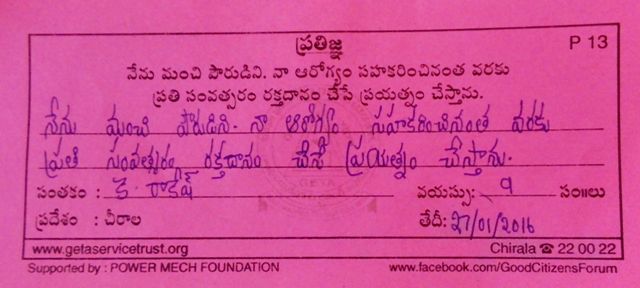 ప్రతిజ్ఞ
P 13
నేను మంచి పౌరుడిని. నా ఆరోగ్యం సహకరించినంత వరకు
ప్రతి సంవత్సరం రక్తదానం చేసే ప్రయత్నం చేస్తాను.
నేను మంచి పౌరుడిని. నా ఆరోగ్యం సహకరించినంత వరకు
ప్రతి సంవత్సరం రక్తదానం చేసే ప్రయత్నం చేస్తాను.
సంతకం : కె. రాకేష్ వయస్సు: 9 సం॥లు
ప్రదేశం : చీరాల తేదీ: 27/01/2016
www.getaservicetrust.org Chirala ☎ 22 00 22
Supported by : POWER MECH FOUNDATION www.facebook.com/GoodCitizensForum